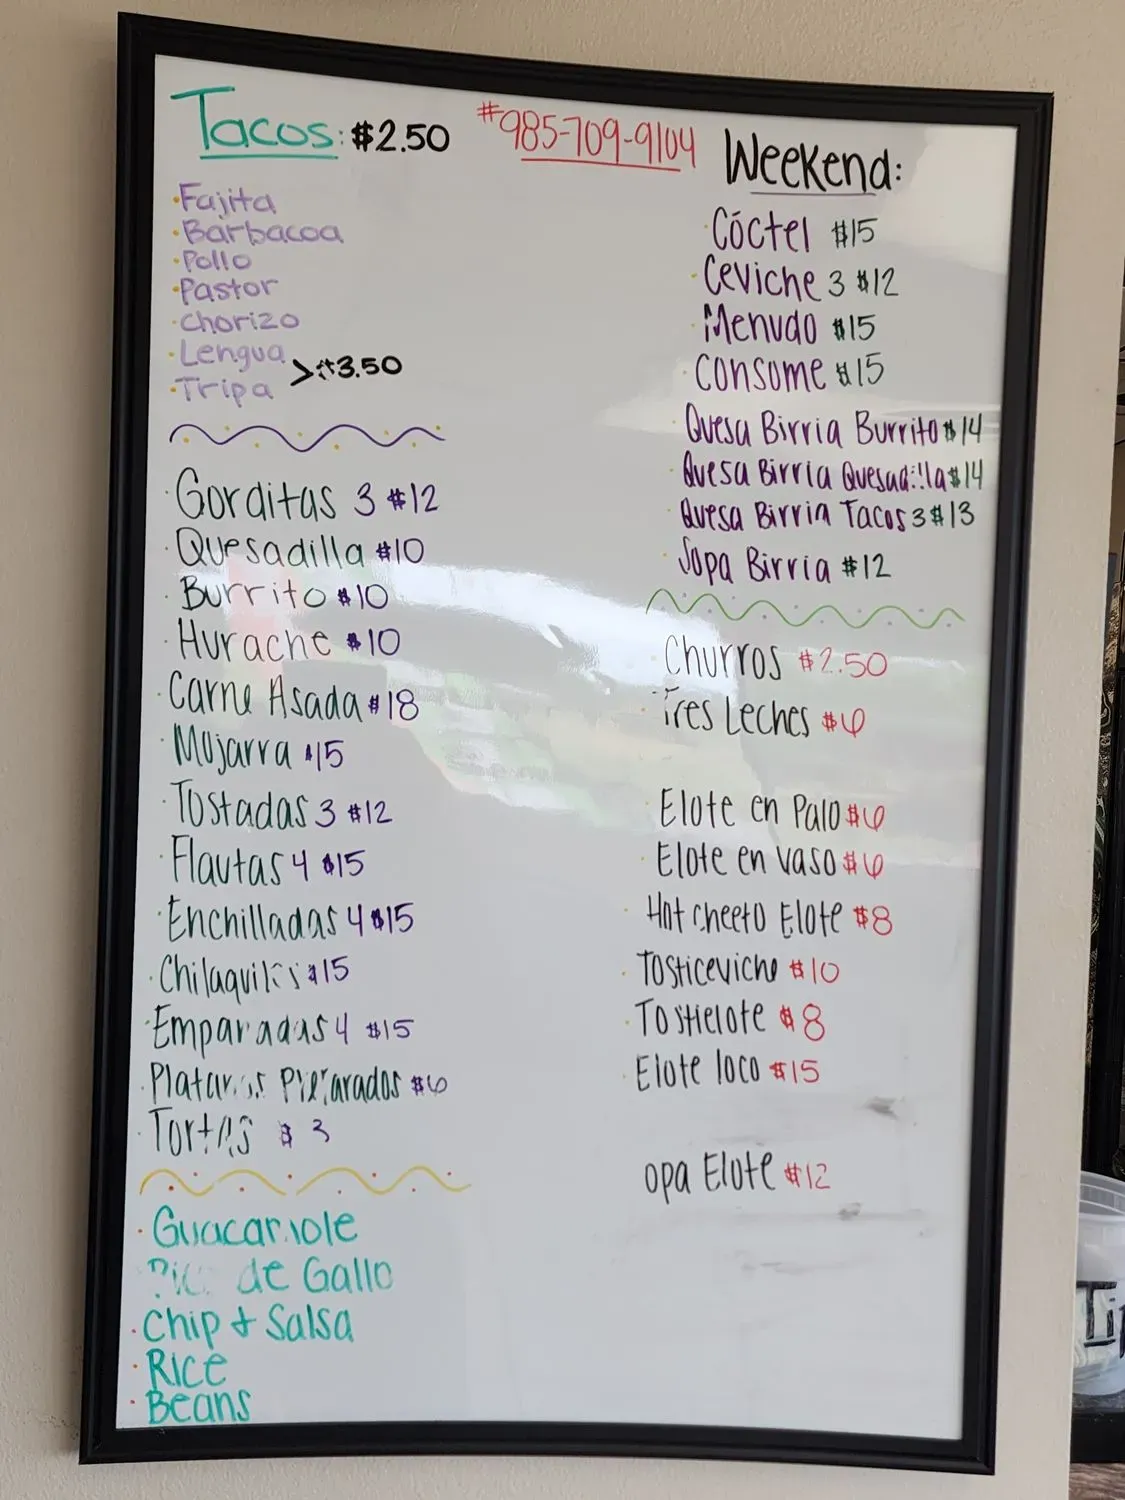 Tacos: $2.50
#985-709-9104
·Fajita
·Barbacoa
·Pollo
·Pastor
·Chorizo
·Lengua
·Tripa
>$3.50
·Gorditas 3 $12
·Quesadilla $10
·Burrito $10
·Hurache $10
·Carne Asada $18
·Mojarra $15
·Tostadas 3 $12
·Flautas 4 $15
·Enchilladas 4 $15
·Chilaquiles $15
·Emparadas 4 $15
·Platanos Preparados $6
·Tortas $3
·Guacamole
de Gallo
·Chip & Salsa
·Rice
·Beans
Weekend:
·Cóctel $15
·Ceviche 3 $12
·Menudo $15
·Consome $15
·Quesa Birria Burrito $14
·Quesa Birria Quesadilla $14
·Quesa Birria Tacos 3 $13
·Sopa Birria $12
·Churros $2.50
·Tres Leches $6
·Elote en Palo $6
·Elote en vaso $6
·Hot cheeto Elote $8
·Tosticeviche $10
·Tostielote $8
·Elote loco $15
opa Elote $12